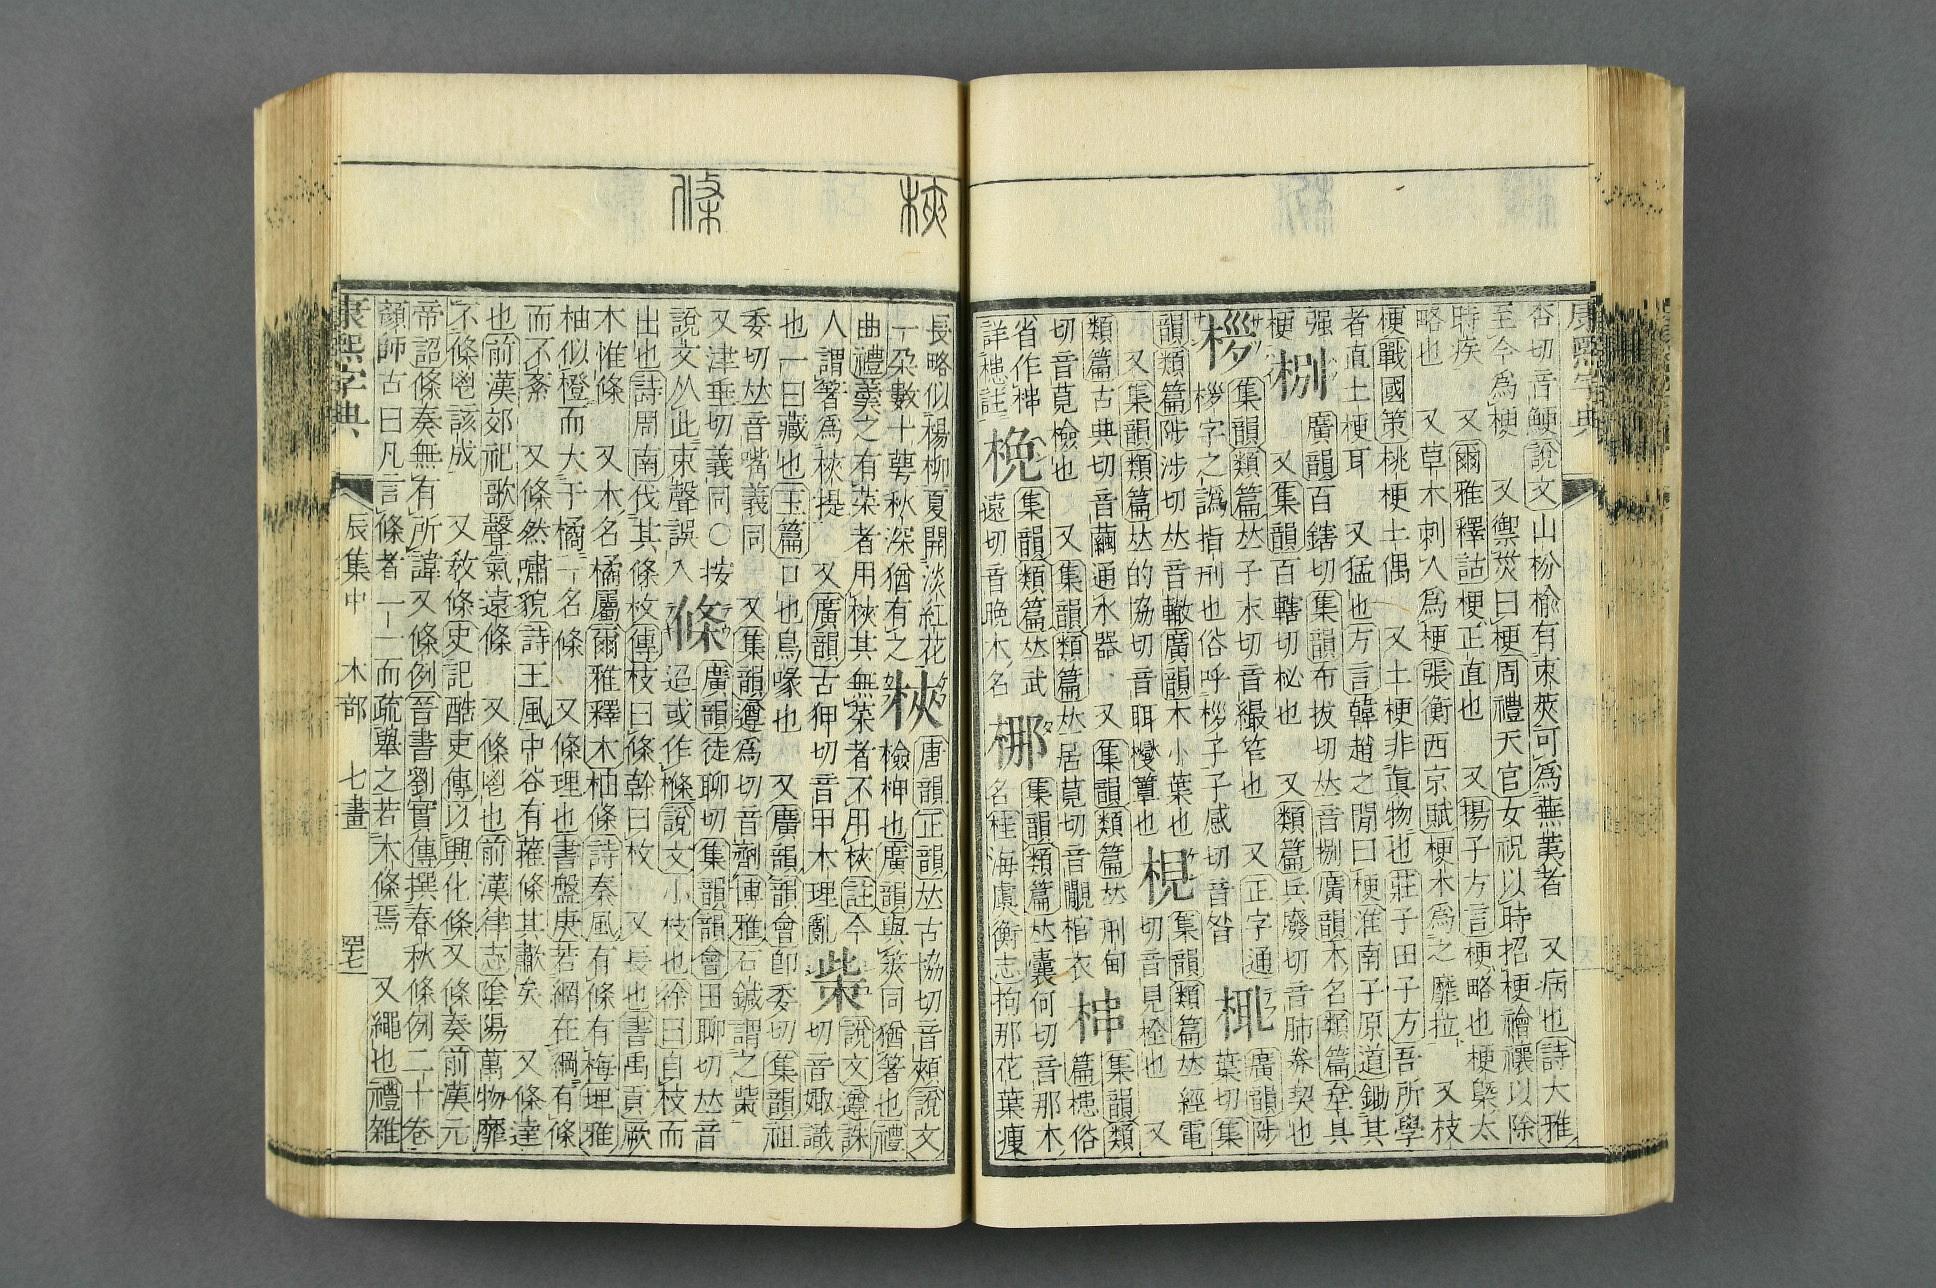 康熙字典
杏切音鯁說文山枌榆有朿莢可爲蕪荑者　又病也詩大雅
至今爲梗　又禦災曰梗周禮天官女祝以時招梗禬禳以除
時疾　又爾雅釋詁梗正直也　又揚子方言梗略也梗槩太
略也　又草木刺人爲梗張衡西京賦梗木爲之靡拉　又枝
梗戰國策桃梗土偶　又土梗非眞物也莊子田子方吾所學
者直土梗耳　又猛也方言韓趙之閒曰梗淮南子原道鋤其
强
梗
捌
廣韻百鎋切集韻布拔切𠀤音捌廣韻木名類篇
又集韻百轄切柲也　又類篇兵廢切音肺劵契也
桚
集韻類篇𠀤子末切音繓笮也　又正字通
桚字之譌指刑也俗呼桚子子感切音昝
㭯
廣韻陟
葉切集
韻類篇陟涉切𠀤音輒廣韻木小葉也
又集韻類篇𠀤的協切音聑簟也
梘
集韻類篇𠀤經電
切音見栓也　又
類篇古典切音繭通水器　又集韻類篇𠀤刑甸
切音莧檢也　又集韻類篇𠀤居莧切音覵棺衣
㭠
集韻類
篇槵俗
省作㭠
詳槵註
梚
集韻類篇𠀤武
遠切音晚木名
梛
集韻類篇𠀤囊何切音那木
名桂海虞衡志拘那花葉瘦
梜
條
長略似楊柳夏開淡紅花
一朶數十萼秋深猶有之
梜
唐韻正韻𠀤古協切音頰說文
檢柙也廣韻與筴同猶箸也禮
曲禮羹之有菜者用梜其無菜者不用梜註今
人謂箸爲梜提　又廣韻古狎切音甲木理亂
也一曰藏也玉篇口也鳥喙也
㭰
說文遵誄
切音識
又廣韻韻會卽委切集韻祖
委切𠀤音嘴義同　又集韻遵爲切音劑博雅石鍼謂之㭰
又津垂切義同○按
說文从此束聲誤入
條
廣韻徒聊切集韻韻會田聊切𠀤音
迢或作樤說文小枝也徐曰自枝而
出也詩周南伐其條枚傳枝曰條幹曰枚　又長也書禹貢厥
木惟條　又木名橘屬爾雅釋木柚條詩秦風有條有梅埤雅
柚似橙而大于橘一名條　又條理也書盤庚若網在綱有條
而不紊　又條然嘯貌詩王風中谷有蓷條其歗矣　又條達
也前漢郊祀歌聲氣遠條　又條鬯也前漢律志陰陽萬物靡
不條鬯該成　又敎條史記酷吏傳以興化條　又條奏前漢元
帝詔條奏無有所諱　又條例晉書劉寔傳撰春秋條例二十卷
顏師古曰凡言條者一一而疏舉之若木條焉　又繩也禮雜
康熙字典　辰集中　木部　七畫